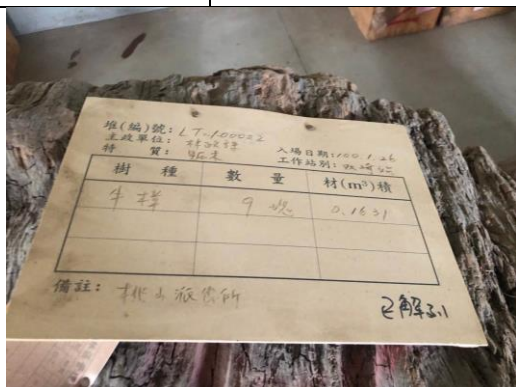 堆(編)號: LT-100002
主政單位: 林政課
特 質: 贓木
入場日期: 100.1.26
工作站別:
樹 種 數 量 材(m³)積
牛樟 9 塊 0.1631
備註: 桃山派出所
已解列